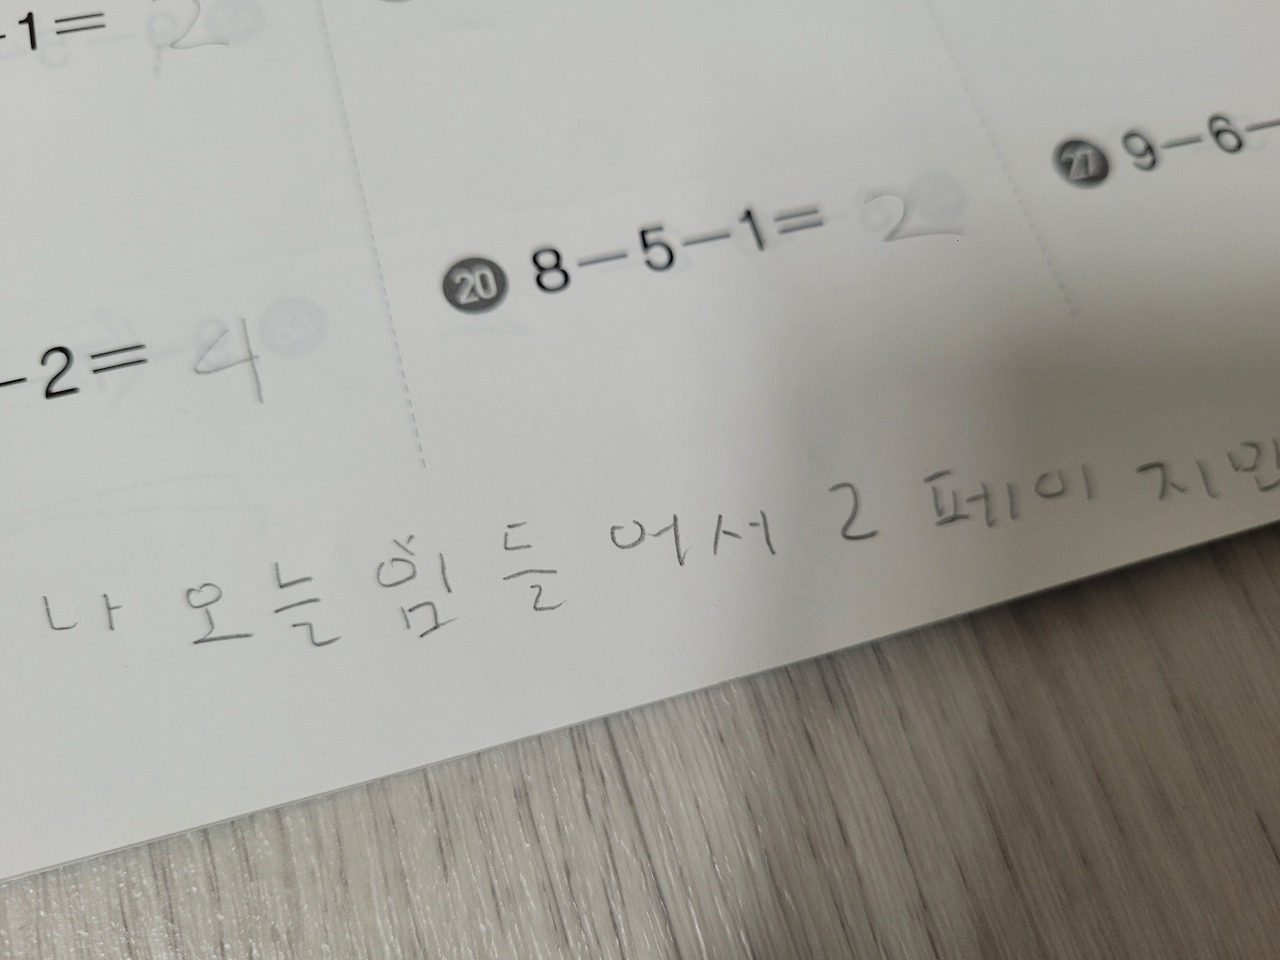 -1= 2
27 9-6-
20 8-5-1= 2
-2= 4
나 오늘 힘들어서 2 페이지만